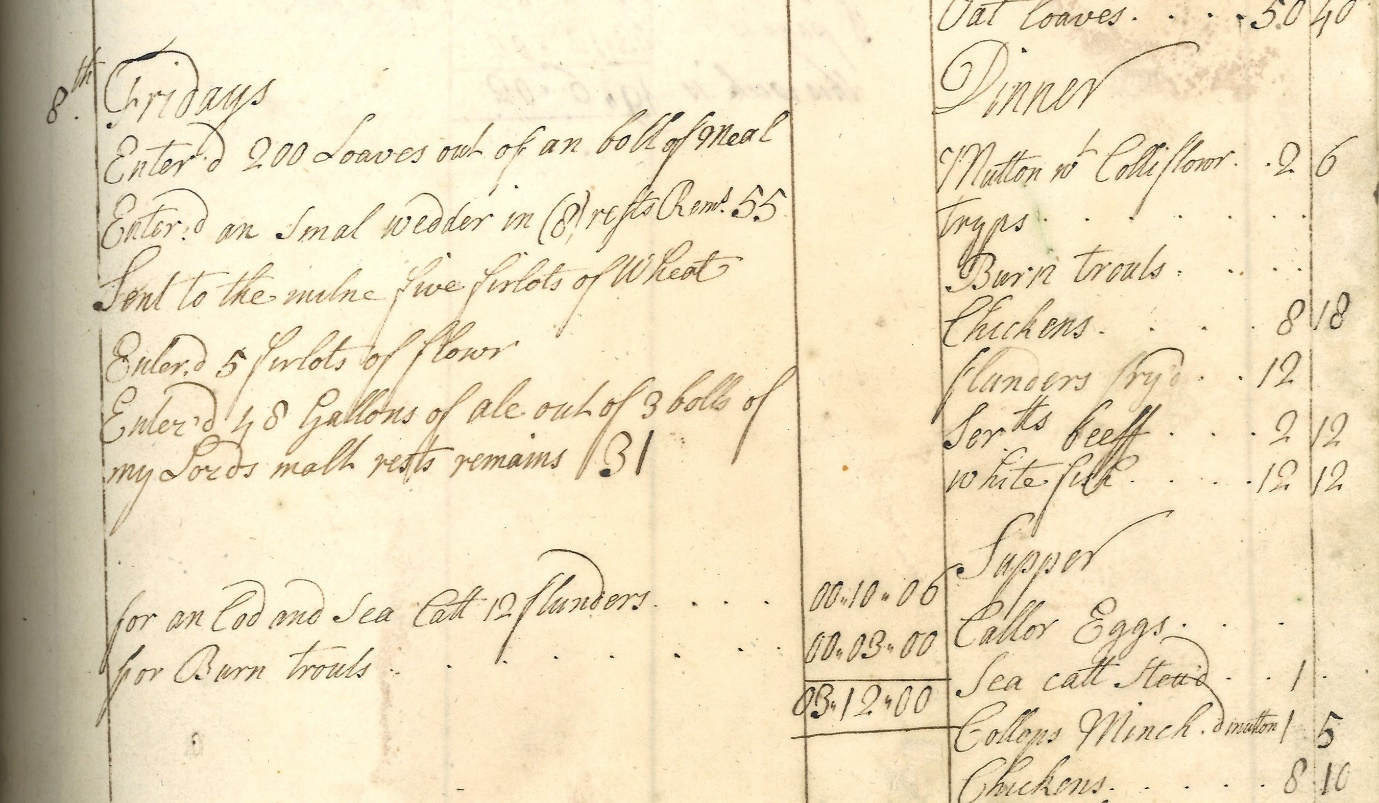 8th. Fridays
Enter'd 200 Loaves out of an boll of Meal
Enter'd an Smal wedder in (8) rests Rems. 55
Sent to the milne five firlots of Wheat
Enter'd 5 firlots of flowr
Enter'd 48 Gallons of ale out of 3 bolls of
my Lords malt rests remains 31
for an Cod and Sea Catt 12 flunders . . . . 00,,10,,06
for Burn trouts . . . . . . . 00,,03,,00
03,,12,,00
Oat loaves . . . . 50 40
Dinner
Mutton wt Colliflowr . . 2 6
tryps . . . . . .
Burn trouts . . . .
Chickens . . . . 8 18
flunders fry'd . . 12
Sertts beeff . . . . 2 12
white fish . . . . . 12 12
Supper
Callor Eggs . . .
Sea catt Stew'd . . 1 .
Collops Minch'd mutton 1 5
Chickens . . . . . 8 10